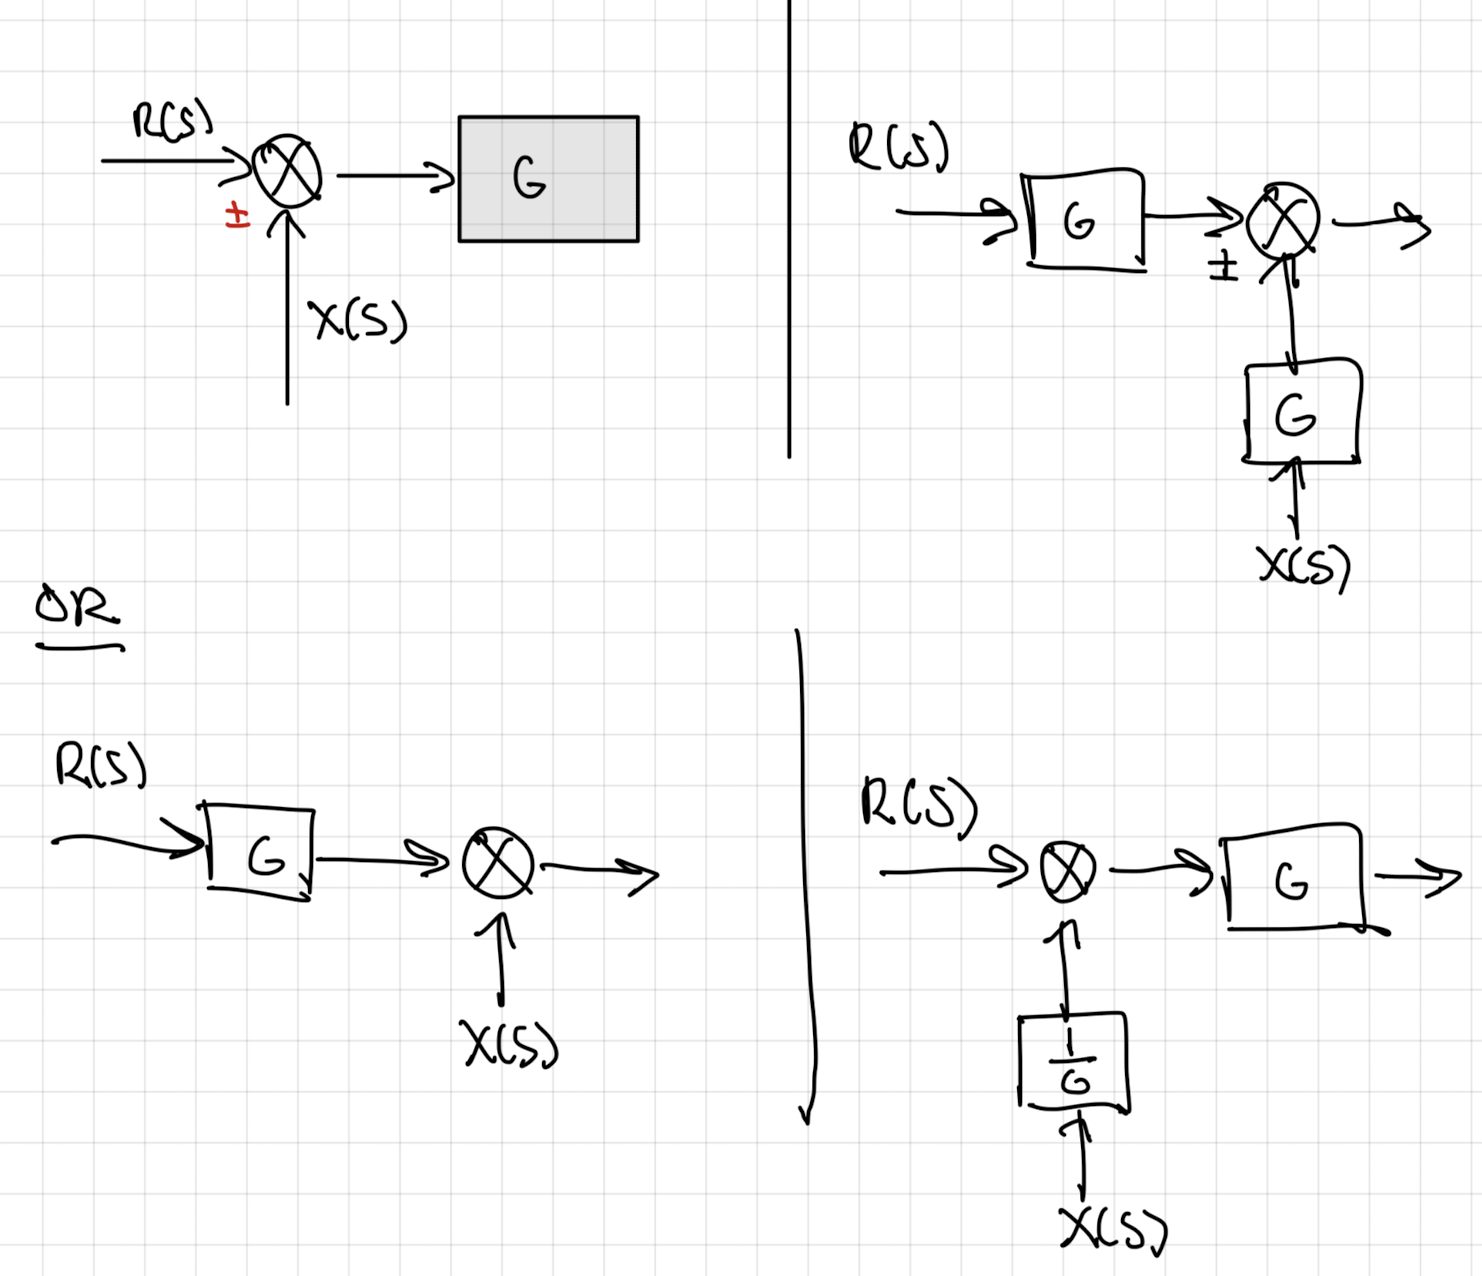 R(S)
±
G
X(S)
R(S)
G
±
G
X(S)
OR
R(S)
G
X(S)
R(S)
G
1
G
X(S)